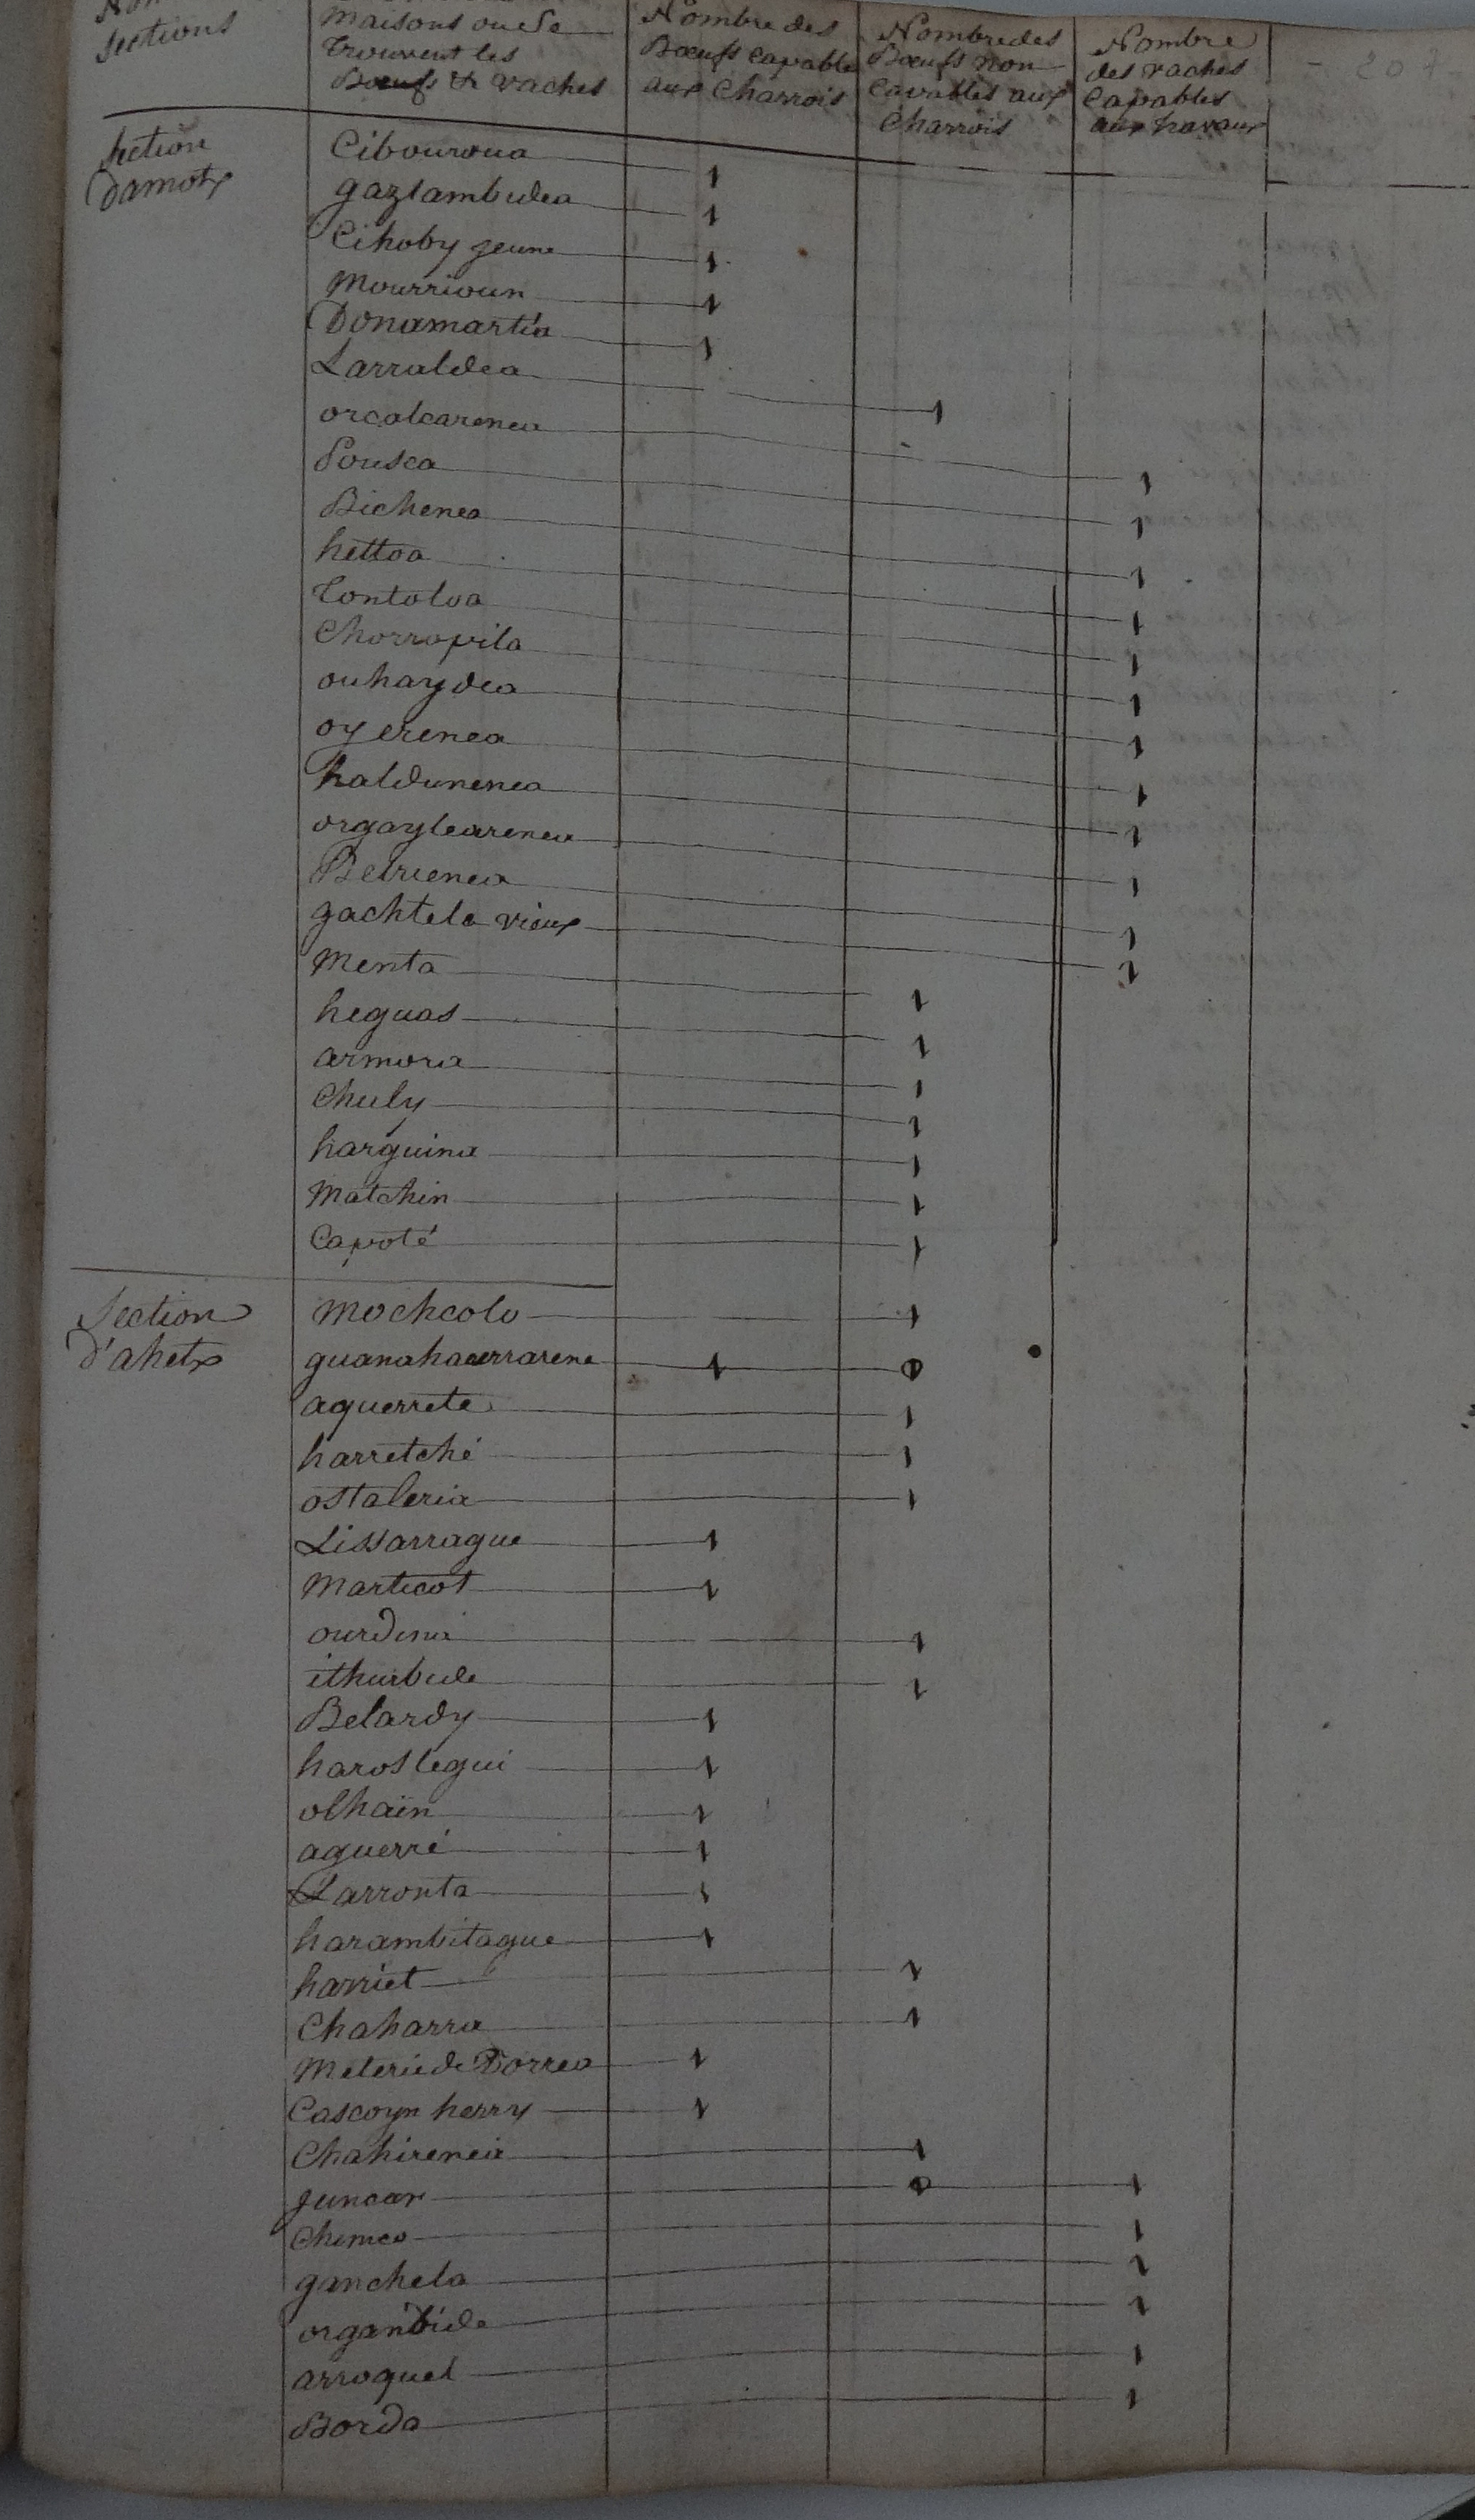 sections
Maisons ou Se
Trouvent les
Bœufs et vaches
Nombre des
Bœufs Capable
aux Charrois
Nombre des
Bœufs non
Capables aux
Charrois
Nombre
des vaches
Capables
aux travaux
- 207 -
Section
Damotx
Cibouroua 1
gaztambidea 1
Cihoby jeune 1
Mourrioun 1
Donamartia 1
Larraldea 1
orcalcarenea 1
Sousca 1
Bichenea 1
hettoa 1
Tontoloa 1
Chorropila 1
ouhaydea 1
oyerenea 1
haldunenea 1
orgaylearenea 1
Betrienea 1
gachtela vieux 1
Menta 1
heguas 1
armora 1
Chuly 1
harguina 1
Matchin 1
Capoté 1
Section
d'ahetx
Mochcolo 1
1 0
aguerrete 1
harretché 1
ostaleria 1
Lissarrague 1
Marticot 1
ourdina 1
ithurbide 1
Belardy 1
harostegui 1
olhaïn 1
aguerré 1
Larronta 1
harambitague 1
harriet 1
Chaharra 1
Meterie de Dorrea 1
Cascoyn herry 1
Chahirenea 1
juncar 0 1
Chimco 1
ganchela 1
organbide 1
arroquet 1
Borda 1